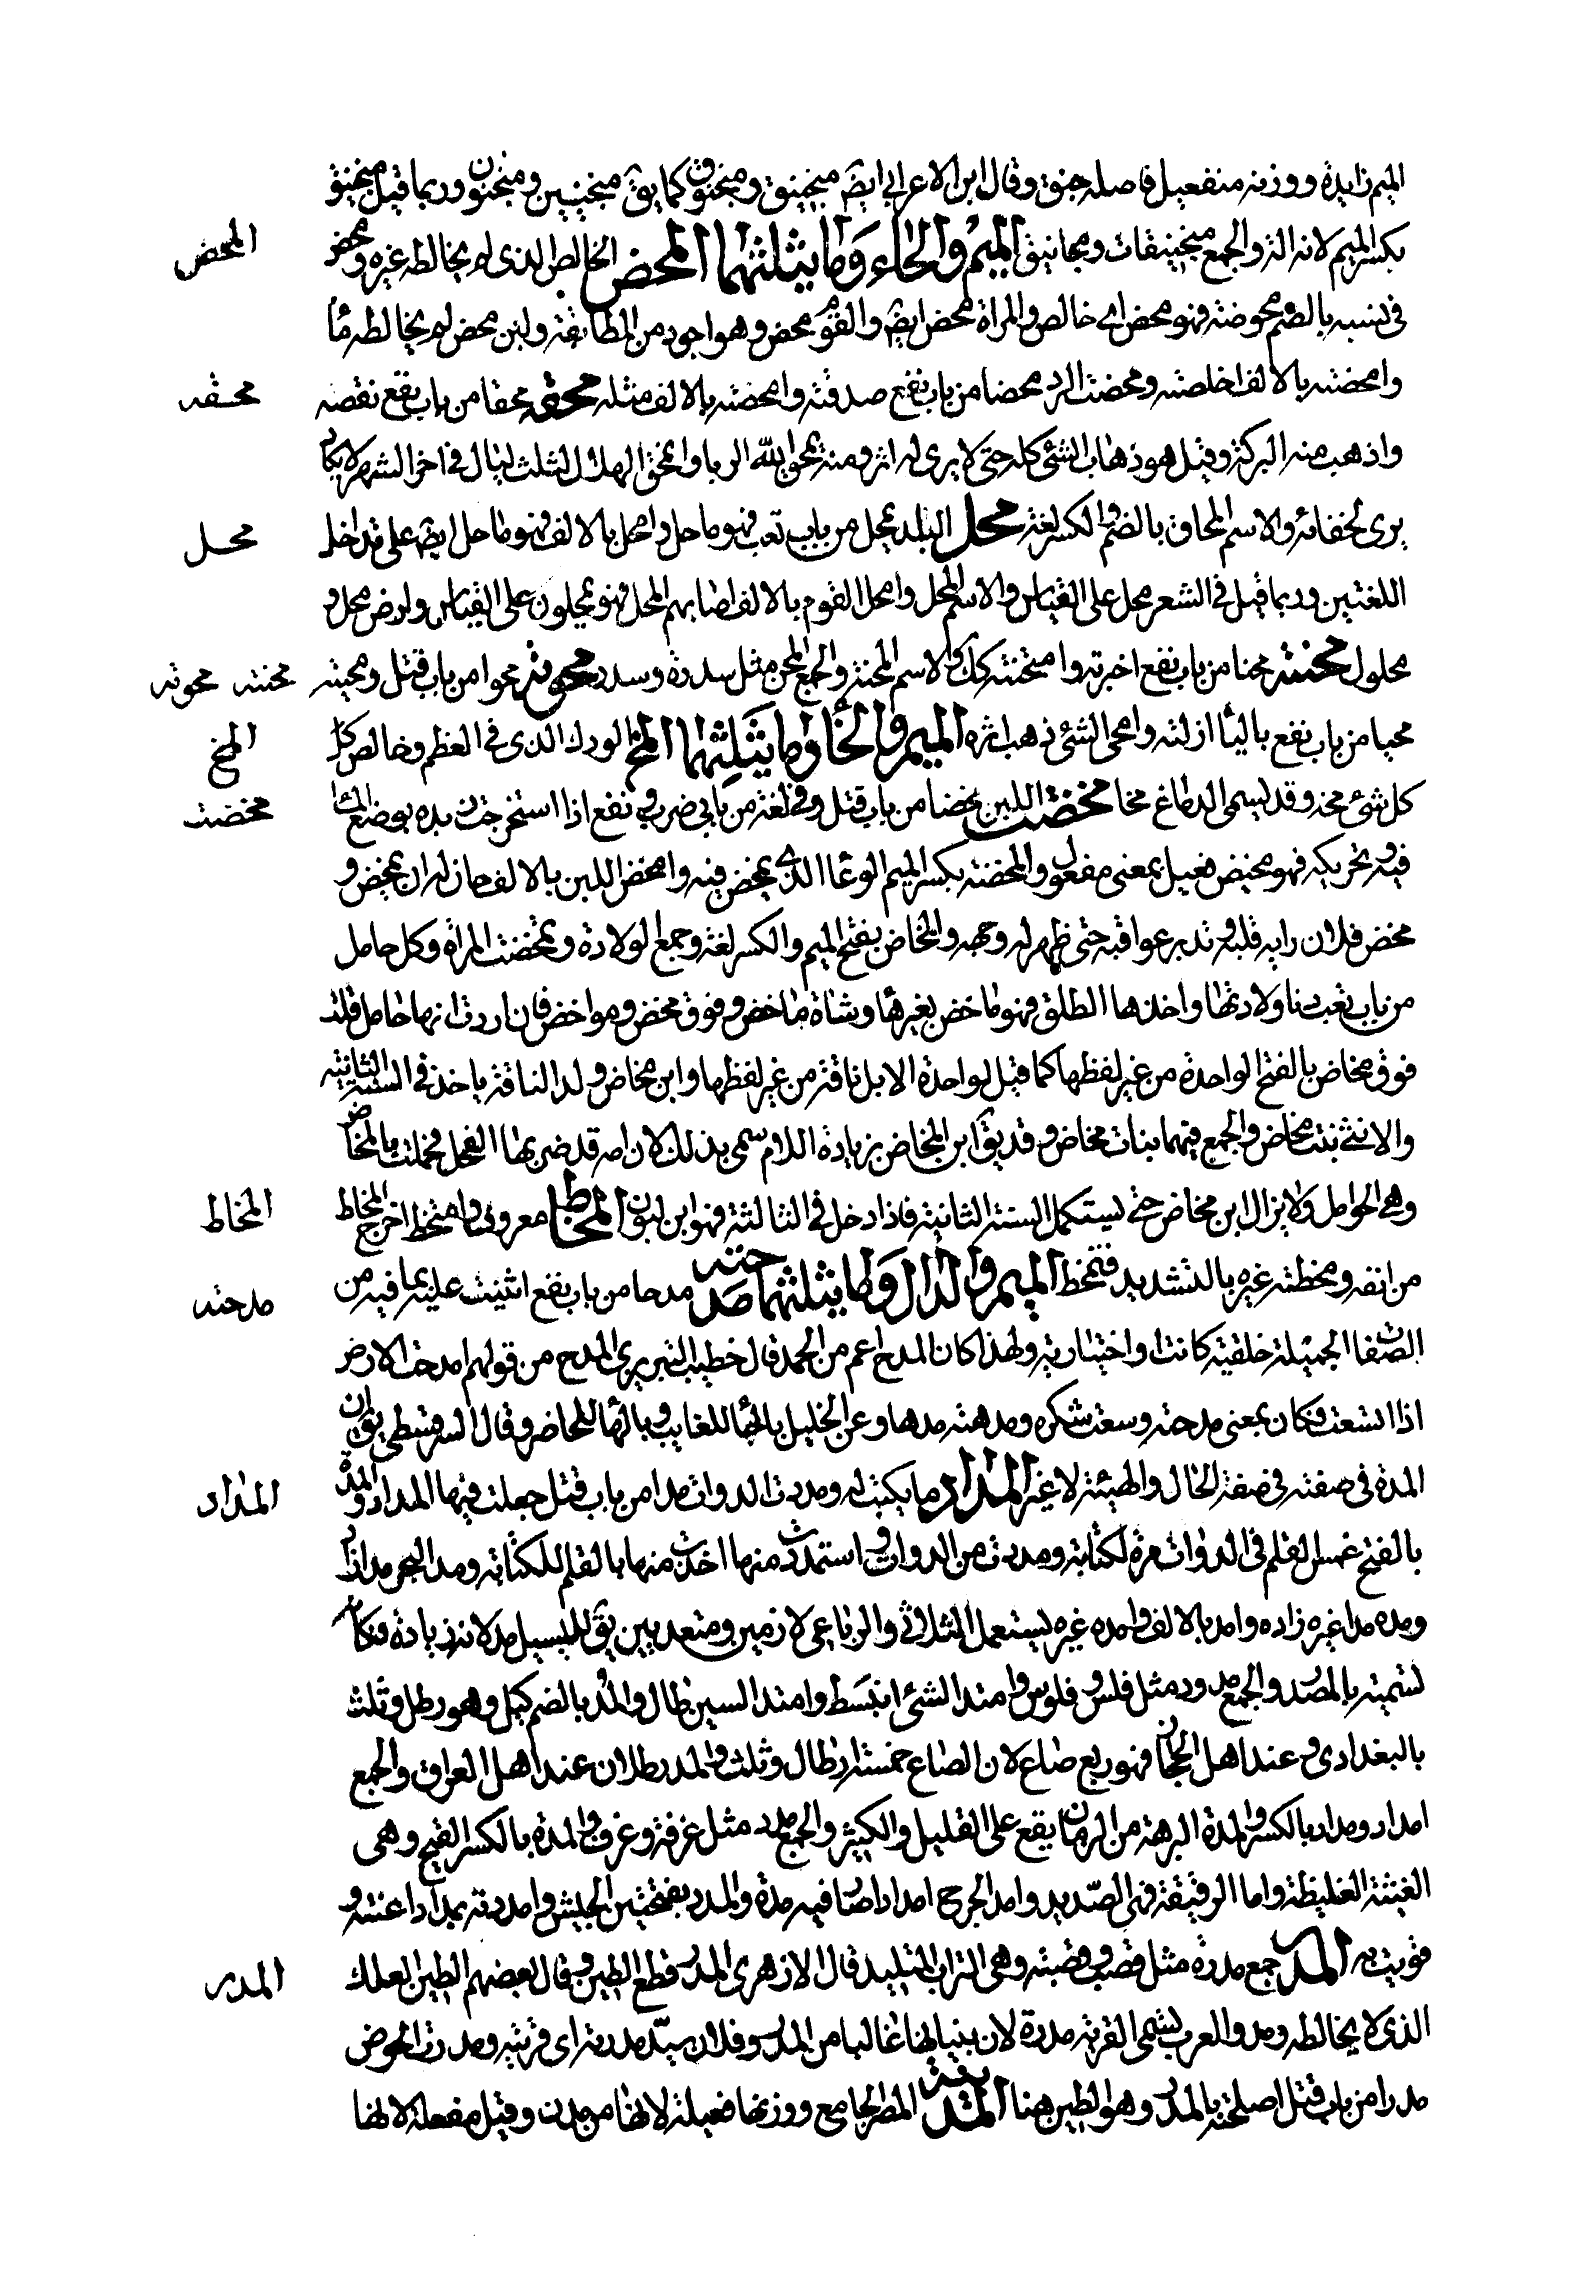 الميم زايدة ووزنه منفعيل فاصله جنق وقال ابن الاعرابي ايضَ منجنيق ومنجنوق كما يقَ منجنين ومنجنون وربما قيل منجنيق
بكسر الميم لانه الة والجمع منجنيقات ومجانيق الميم والحاء وما يثلثهما المحض الخالص الذى لم يخالطه غيره ومحض
المحض
فى نسبه بالضم محوضة فهو محض اى خالص والمراة محض ايضَ والقوم محض وهو اجود من المطابقة ولبن محض لم يخالطه ماء
وامحضته بالالف اخلصته ومحضت الود محضا من باب نفع صدقته وامحضته بالالف مثله محقه محقا من باب نفع نقصه
محقه
واذهب منه البركة وقيل هو ذهاب الشئ كله حتى لا يرى له اثر ومنه يمحق الله الربا وامحق الهلال لثلث ليال فى اخر الشهر لا يكاد
يرى لخفائه والاسم المحاق بالضم والكسر لغة محل البلد يمحل من باب تعب فهو ماحل وامحل بالالف فهو ماحل ايضَ على تداخل
محل
اللغتين وربما قيل فى الشعر ممحل على القياس والاسم المحل وامحل القوم بالالف اصابهم المحل فهو ممحلون على القياس وارض محل و
محلول محنته محنا من باب نفع اختبرته وامتحنته كذلك والاسم المحنة والجمع المحن مثل سدرة وسدر محوته محوا من باب قتل ومحيته
محنته محوته
محيا من باب نفع بالياء ازلته وامحى الشئ ذهب اثره الميم والخا وما يثلثهما المخ الودك الذى فى العظم وخالص كل
المخ
كل شئ مخه وقد يسمى الدماغ مخا مخضت اللبن مخضا من باب قتل وفى لغة من بابى ضرب و نفع اذا استخرجت زبده بوضع الماء
مخضت
فيه وتحريكه فهو مخيض فعيل بمعنى مفعول والمخضة بكسر الميم الوعاء الذى يمخض فيه وامخض اللبن بالالف حان له ان يمخض و
مخض فلان رايه قلبه وتدبر عواقبه حتى ظهر له وجهه والمخاض بفتح الميم والكسر لغة وجع الولادة ومخضت المراة وكل حامل
من باب تعب دنا ولادتها واخذها الطلق فهو ماخض بغير هاء وشاة ماخض ونوق مخض ومواخض فان اردت انها حامل قلت
نوق مخاض بالفتح الواحدة من غير لفظها كما قيل لواحدة الابل ناقة من غير لفظها وابن مخاض ولد الناقة ياخذ فى السنة الثانية
والانثى بنت مخاض والجمع فيهما بنات مخاض وقد يقَ ابن المخاض بزيادة اللام سمى بذلك لان امه قد ضربها الفحل فحملت بالمخاض
وهى الحوامل ولا يزال ابن مخاض حتى يستكمل السنة الثانية فاذا دخل فى الثالثة فهو ابن لبون المخاط معروف وامتخط اخرج المخاط
المخاط
من انفه ومخطته غيره بالتشديد فتمخط الميم والدال وما يثلثهما مدحته مدحا من باب نفع اثنيت عليه بما فيه من
مدحته
الصفات الجميلة خلقية كانت او اختيارية ولهذا كان المدح اعم من الحمد قال خطيب التبريزى المدح من قولهم امدحت الارض
اذا اتسعت فكان بمعنى مدحته وسعت شكره ومدهته مدها وعن الخليل بالحاء للغايب وبالهاء للحاضر وقال السرقسطى يقَ ان
المدة فى صفته فى صفة الحال والهيئة لا غير المداد ما يكتب له ومددت الدوات مدا من باب قتل جعلت فيها المداد والمدة
المداد
بالفتح غمس القلم فى الدوات مرة لكتابة ومددت من الدوات واستمددت منها اخذت منها بالقلم للكتابة ومد البحر مدا زاد
ومده مدا غيره زاده وامد بالالف وامده غيره يستعمل الثلاثى والرباعى لازمين ومتعديين يقَ للسيل مد لانه زيادة فكانه
تسمية بالمصدر والجمع مدود مثل فلس وفلوس وامتد الشئ انبسط وامتد السير طال والمد بالضم كيل وهو رطل وثلث
بالبغدادى عند اهل الحجاز فهو ربع صاع لان الصاع خمسة ارطال وثلث والمد رطلان عند اهل العراق والجمع
امداد ومداد بالكسر والمدة البرهة من الزمان يقع على القليل والكثير والجمع مدد مثل غرفة وغرف والمدة بالكسر القيح وهى
الغثيثة الغليظة واما الرقيقة فهى الصديد وامد الجرح امدادا صار فيه مدة والمدد بفتحتين الجيش وامددته بمدد اعنته و
قويت به المدر جمع مدرة مثل قصب وقصبة وهى التراب المتلبد قال الازهرى المدر قطع الطين وقال بعضهم الطين العلك
المدر
الذى لا يخالطه رمل والعرب يسمى القرية مدرة لان بنيانها غالبا من المدر وفلان سيد مدرته اى قريته ومدرت الحوض
مدرا من باب قتل اصلحته بالمدر وهو الطين هنا المدينة المصر الجامع ووزنها فعيلة لانها من مدن وقيل مفعلة لانها